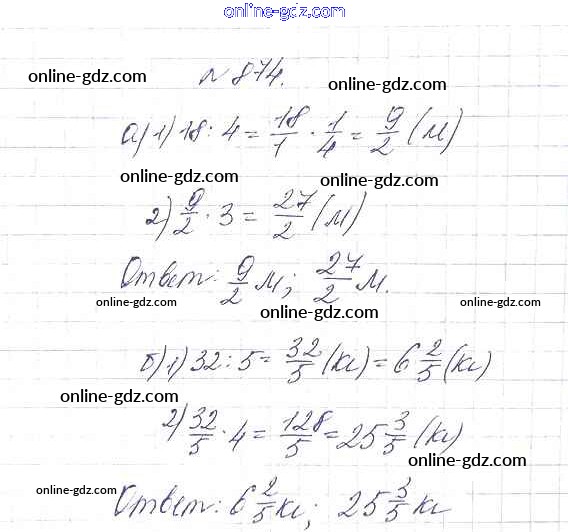 online-gdz.com
online-gdz.com № 874. online-gdz.com
а) 1) 18 : 4 = 18/1 · 1/4 = 9/2 (м)
online-gdz.com online-gdz.com
2) 9/2 · 3 = 27/2 (м)
Ответ: 9/2 м; 27/2 м.
online-gdz.com online-gdz.com online-gdz.com
б) 1) 32 : 5 = 32/5 (кг) = 6 2/5 (кг)
online-gdz.com
2) 32/5 · 4 = 128/5 = 25 3/5 (кг)
online-gdz.com
online-gdz.com
Ответ: 6 2/5 кг; 25 3/5 кг
online-gdz.com